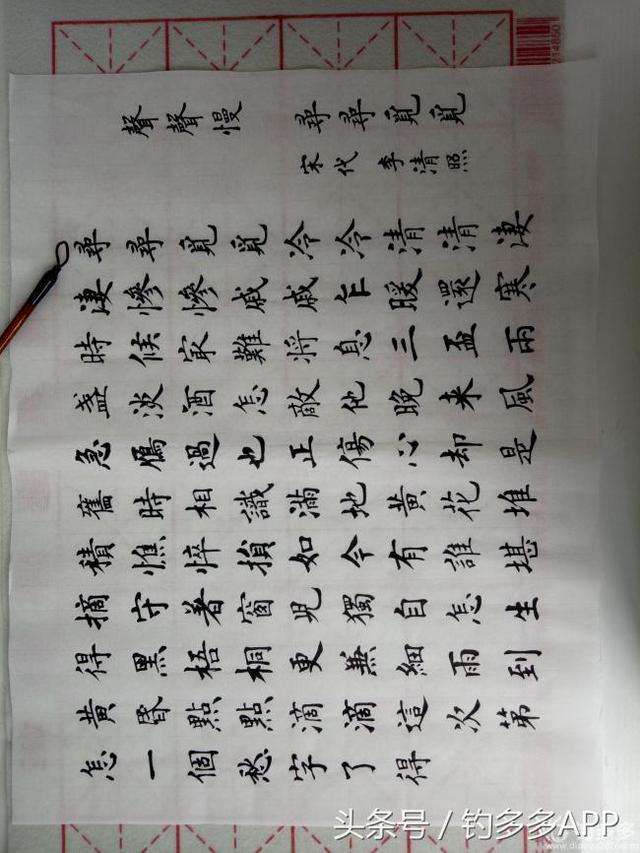 聲聲慢 尋尋覓覓
宋代 李清照
尋尋覓覓冷冷清清淒
淒慘慘戚戚乍暖還寒
時候冣難將息三盃兩
盞淡酒怎敵他晚来風
急鴈過也正傷心却是
舊時相識滿地黃花堆
積憔悴損如今有誰堪
摘守着窗兒獨自怎生
得黑梧桐更兼細雨到
黃昏點點滴滴這次第
怎一個愁字了得
头条号 / 钓多多APP